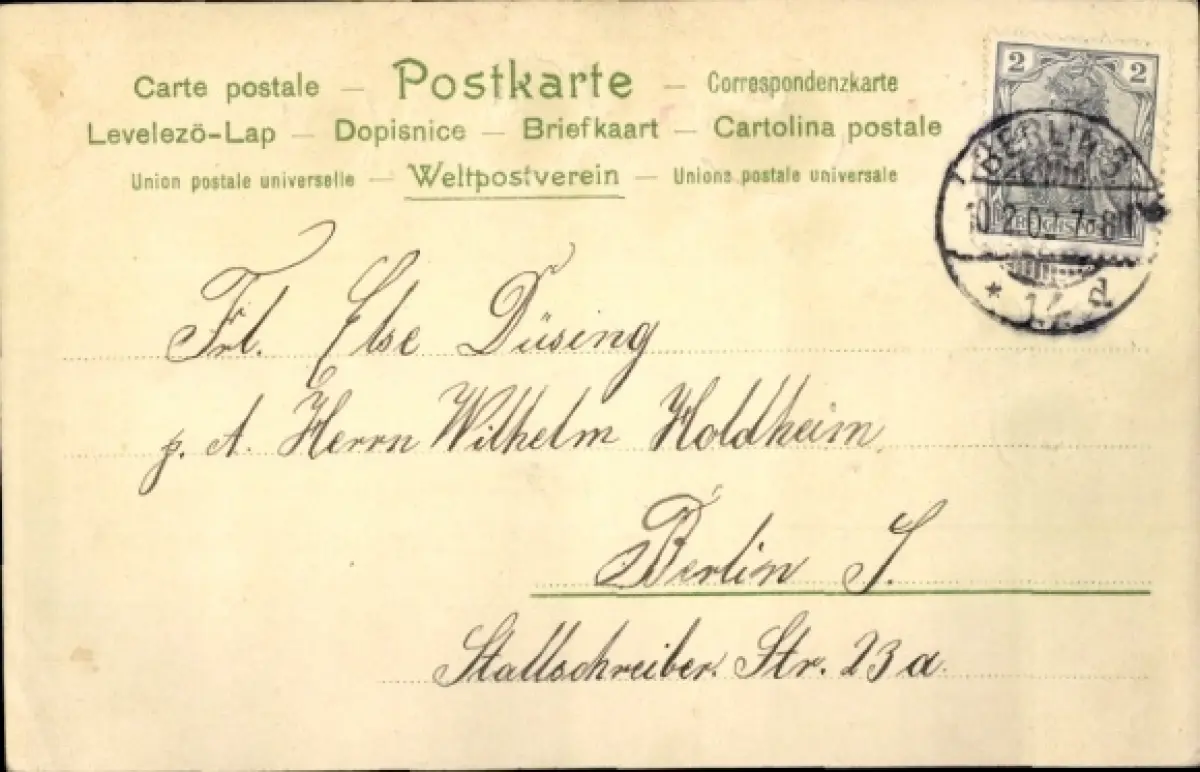 Carte postale — Postkarte — Correspondenzkarte
Levelezö-Lap — Dopisnice — Briefkaart — Cartolina postale
Union postale universelle — Weltpostverein — Unions postale universale
2 2
BERLIN S.
2.02 7-8
* 14 d
Frl. Else Düsing
p. A. Herrn Wilhelm Holdheim
Berlin S.
Stallschreiber. Str. 23 a.